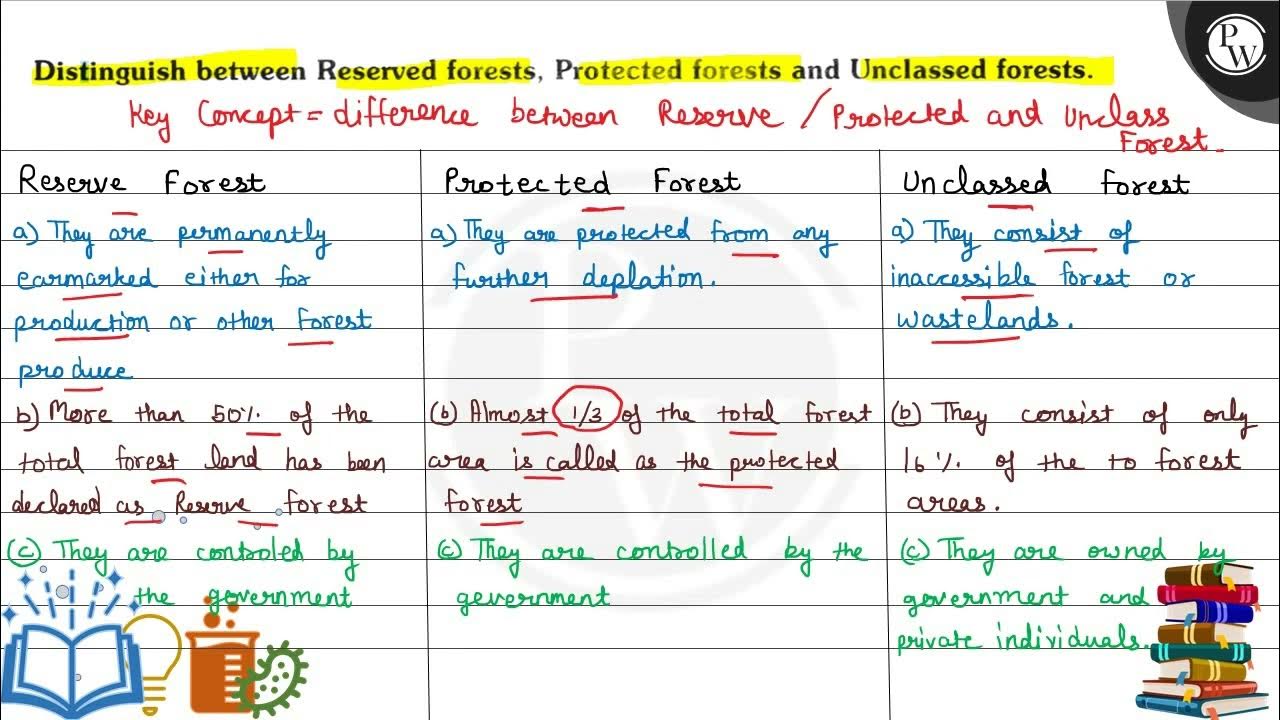 PW
Distinguish between Reserved forests, Protected forests and Unclassed forests.
Key Concept = difference between Reserve / Protected and Unclass
Forest.
Reserve Forest
a) They are permanently
earmarked either for
production or other Forest
produce
b) More than 50% of the
total forest land has been
declared as Reserve forest
(c) They are controled by
the government
Protected Forest
a) They are protected from any
further deplation.
(b) Almost 1/3 of the total forest
area is called as the protected
forest
(c) They are controlled by the
gevernment
Unclassed Forest
a) They consist of
inaccessible forest or
wastelands.
(b) They consist of only
16% of the to forest
areas.
(c) They are owned by
government and
private individuals.
PW